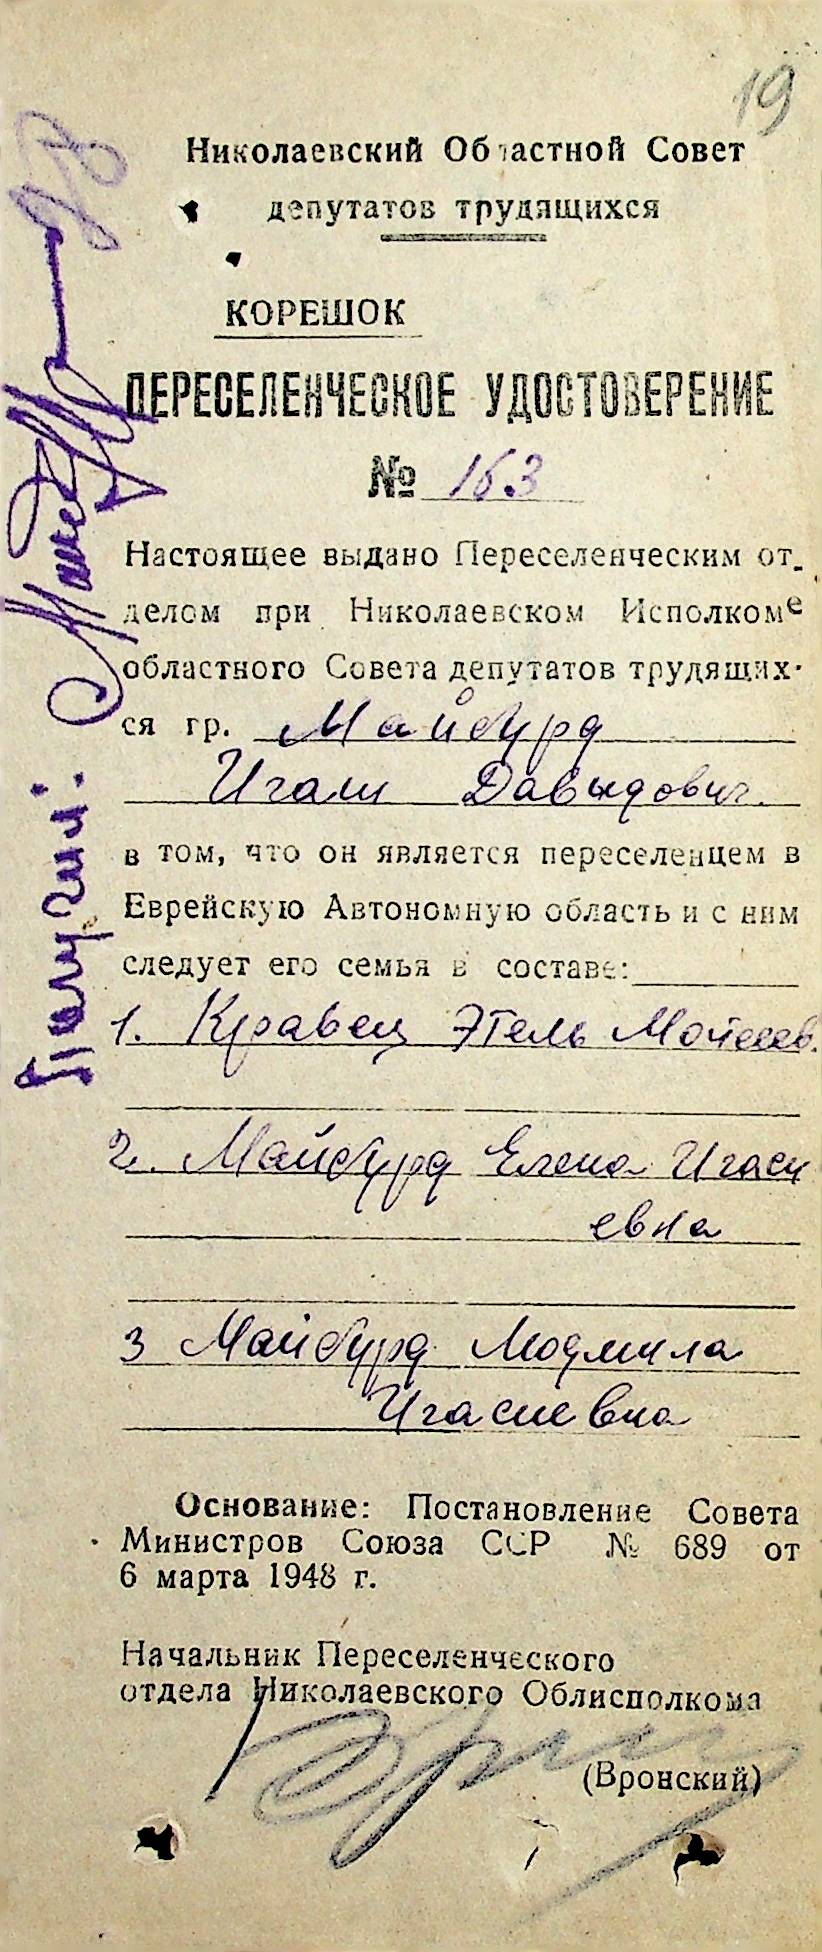 19
Николаевский Областной Совет
депутатов трудящихся
КОРЕШОК
ПЕРЕСЕЛЕНЧЕСКОЕ УДОСТОВЕРЕНИЕ
№ 163
Настоящее выдано Переселенческим от-
делом при Николаевском Исполкоме
областного Совета депутатов трудящих-
ся гр. Майбурд
Игаси Давыдович
в том, что он является переселенцем в
Еврейскую Автономную область и с ним
следует его семья в составе:
1. Кравец Этель Мотелев.
2. Майбурд Елена Игаси
евна
3 Майбурд Людмила
Игасиевна
Основание: Постановление Совета
Министров Союза ССР № 689 от
6 марта 1948 г.
Начальник Переселенческого
отдела Николаевского Облисполкома
(Вронский)
Получил: